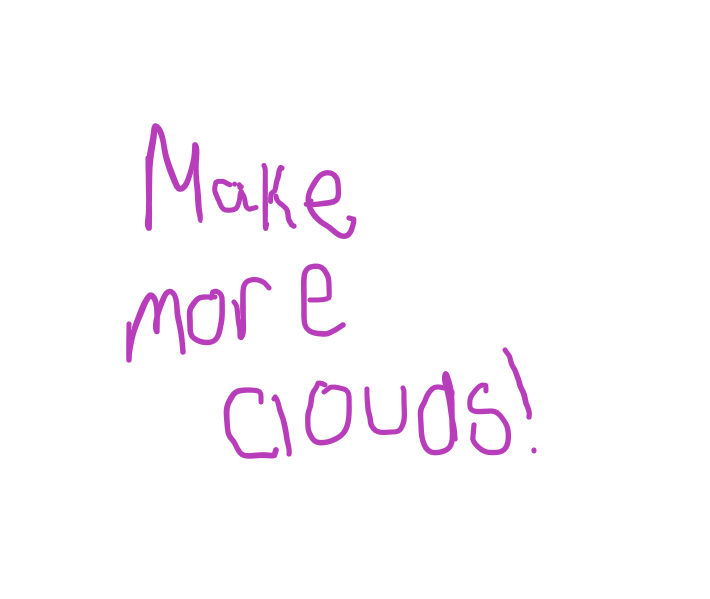 Make
more
clouds!